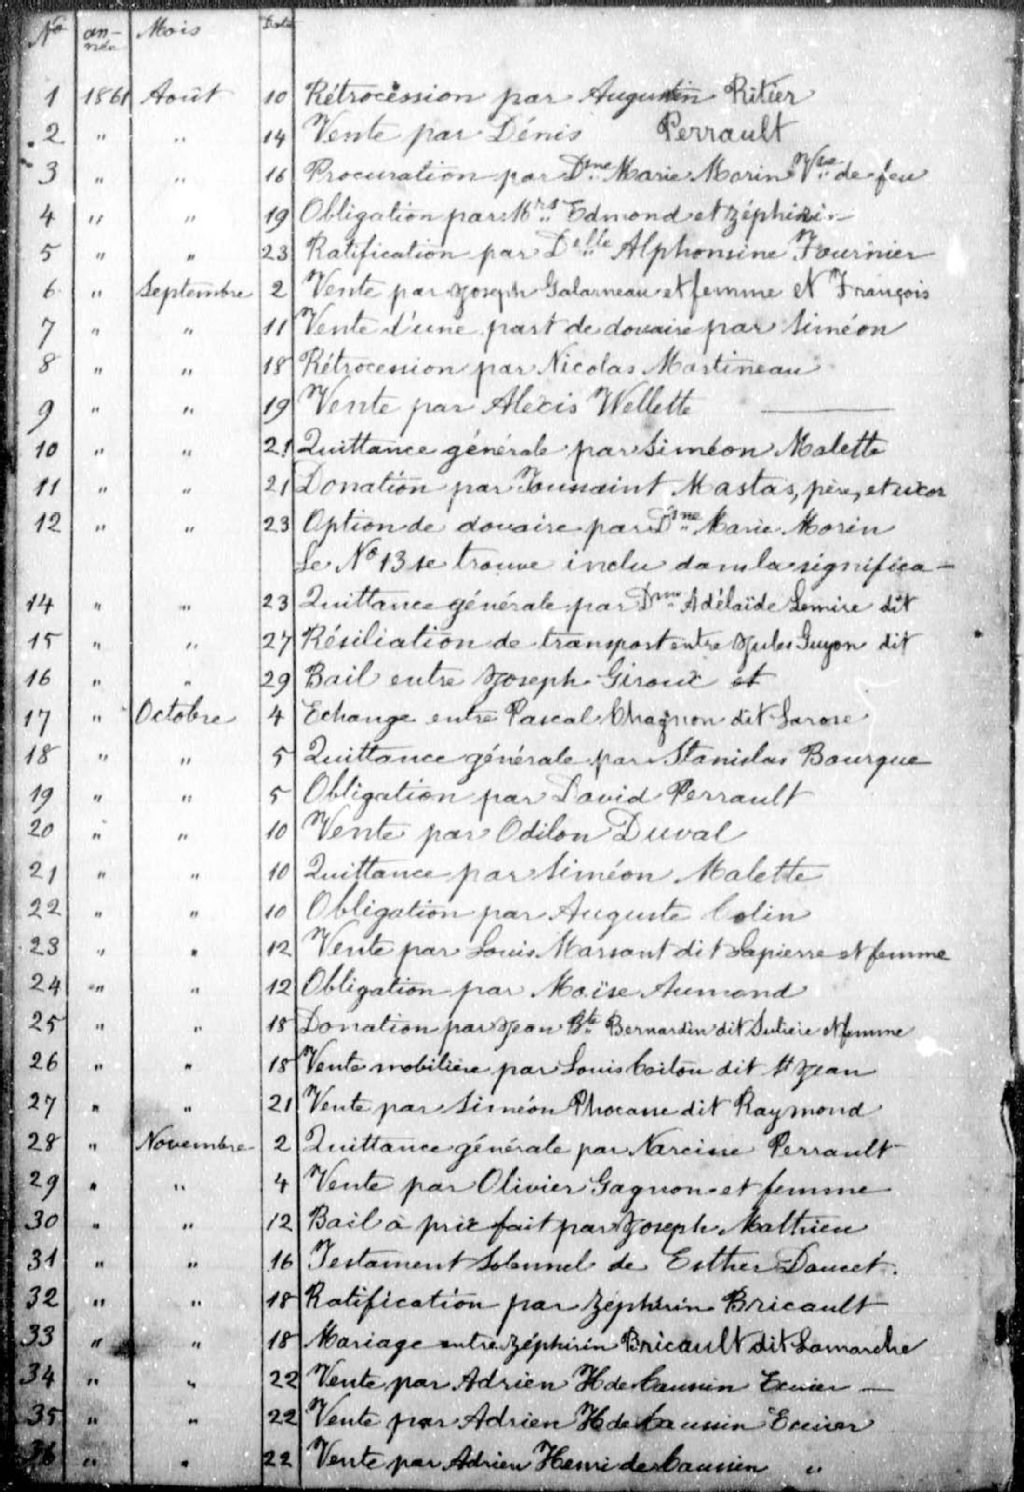 No an- née Mois Date
1 1861 Août 10 Rétrocession par Augustin Ritier
2 " " 14 Vente par Dénis Perrault
3 " " 16 Procuration par Dme Marie Morin Vve de feu
4 " " 19 Obligation par Mrs Edmond et Zéphirin
5 " " 23 Ratification par Delle Alphonsine Fournier
6 " Septembre 2 Vente par Joseph Galarneau et femme et François
7 " " 11 Vente d'une part de douaire par Siméon
8 " " 18 Rétrocession par Nicolas Martineau
9 " " 19 Vente par Alexis Wellette
10 " " 21 Quittance générale par Siméon Malette
11 " " 21 Donation par Toussaint Mastas, père, et uxor
12 " " 23 Option de douaire par Dme Marie Morin
Le No 13 se trouve inclu dans la significa-
14 " " 23 Quittance générale par Dme Adélaïde Lemire dit
15 " " 27 Résiliation de transport entre Jules Guyon dit
16 " " 29 Bail entre Joseph Giroux et
17 " Octobre 4 Echange entre Pascal Chagnon dit Larose
18 " " 5 Quittance générale par Stanislas Bourque
19 " " 5 Obligation par David Perrault
20 " " 10 Vente par Odilon Duval
21 " " 10 Quittance par Siméon Malette
22 " " 10 Obligation par Auguste Colin
23 " " 12 Vente par Louis Marsant dit Lapierre et femme
24 " " 12 Obligation par Moïse Aumond
25 " " 18 Donation par Jean Bte Bernardin dit et femme
26 " " 18 Vente mobilière par Louis Coitou dit St Jean
27 " " 21 Vente par Siméon Phocasse dit Raymond
28 " Novembre 2 Quittance générale par Narcisse Perrault
29 " " 4 Vente par Olivier Gagnon et femme
30 " " 12 Bail à prix fait par Joseph Mathieu
31 " " 16 Testament Solennel de Esther Doucet.
32 " " 18 Ratification par Zéphirin Bricault
33 " " 18 Mariage entre Zéphirin Bricault dit Lamarche
34 " " 22 Vente par Adrien H de Caussin Ecuier —
35 " " 22 Vente par Adrien H de Caussin Ecuier
36 " " 22 Vente par Adrien Henri de Caussin "